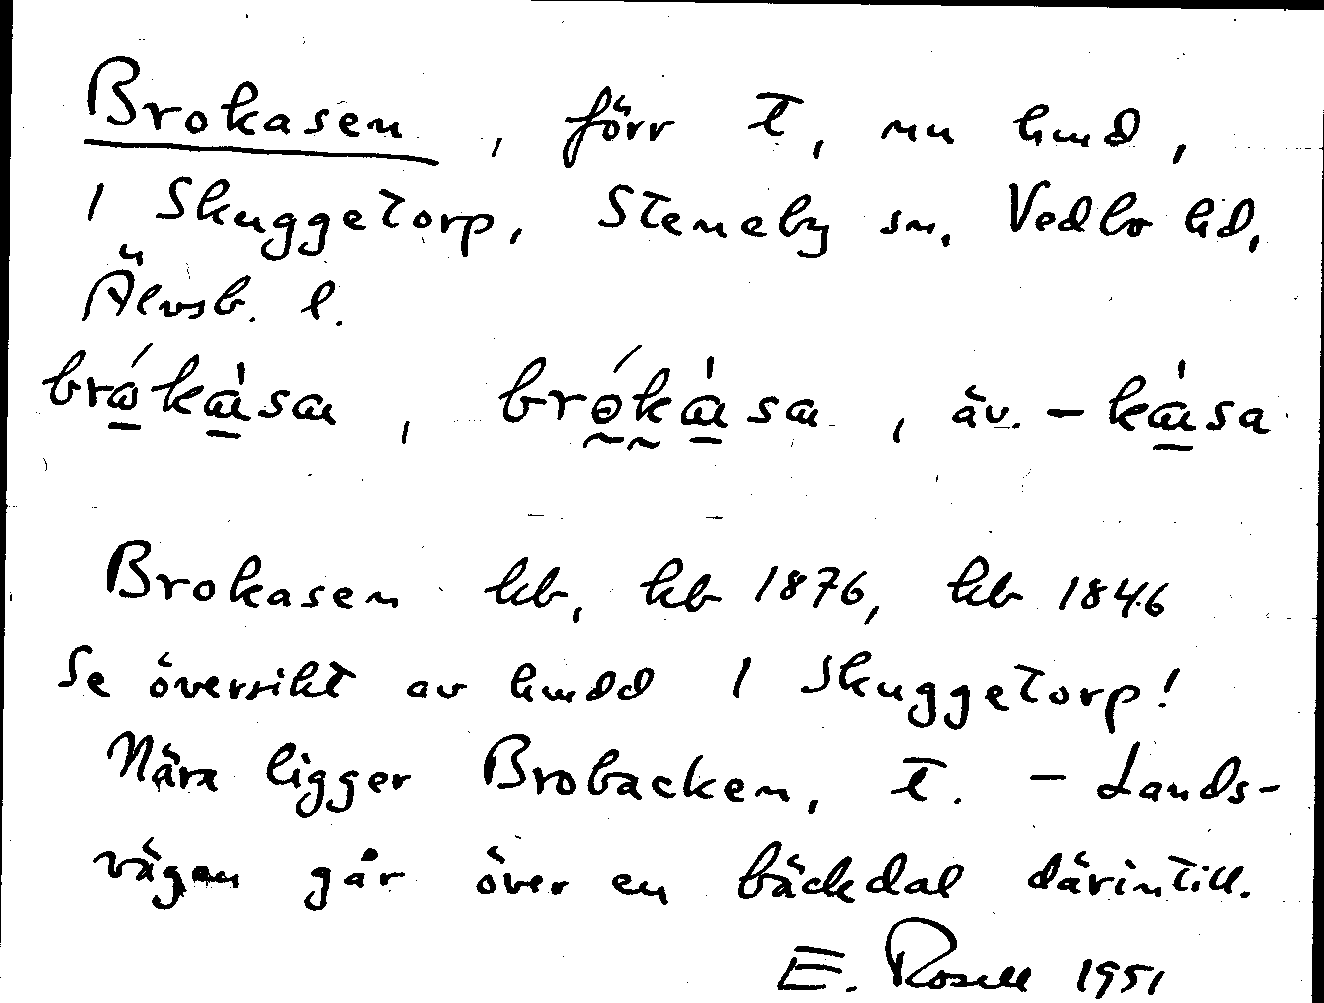 Brokasen, förr t, nu hmd,
i Skuggetorp, Steneby sn, Vedbo hd,
Älvsb. l.
brókàsa, brókàsa, äv. -kàsa
Brokasen kb, kb 1876, kb 1846
Se översikt av hmdd i Skuggetorp!
Nära ligger Brobacken, t. - Lands-
vägen går över en bäckdal därintill.
E. Rosell 1951